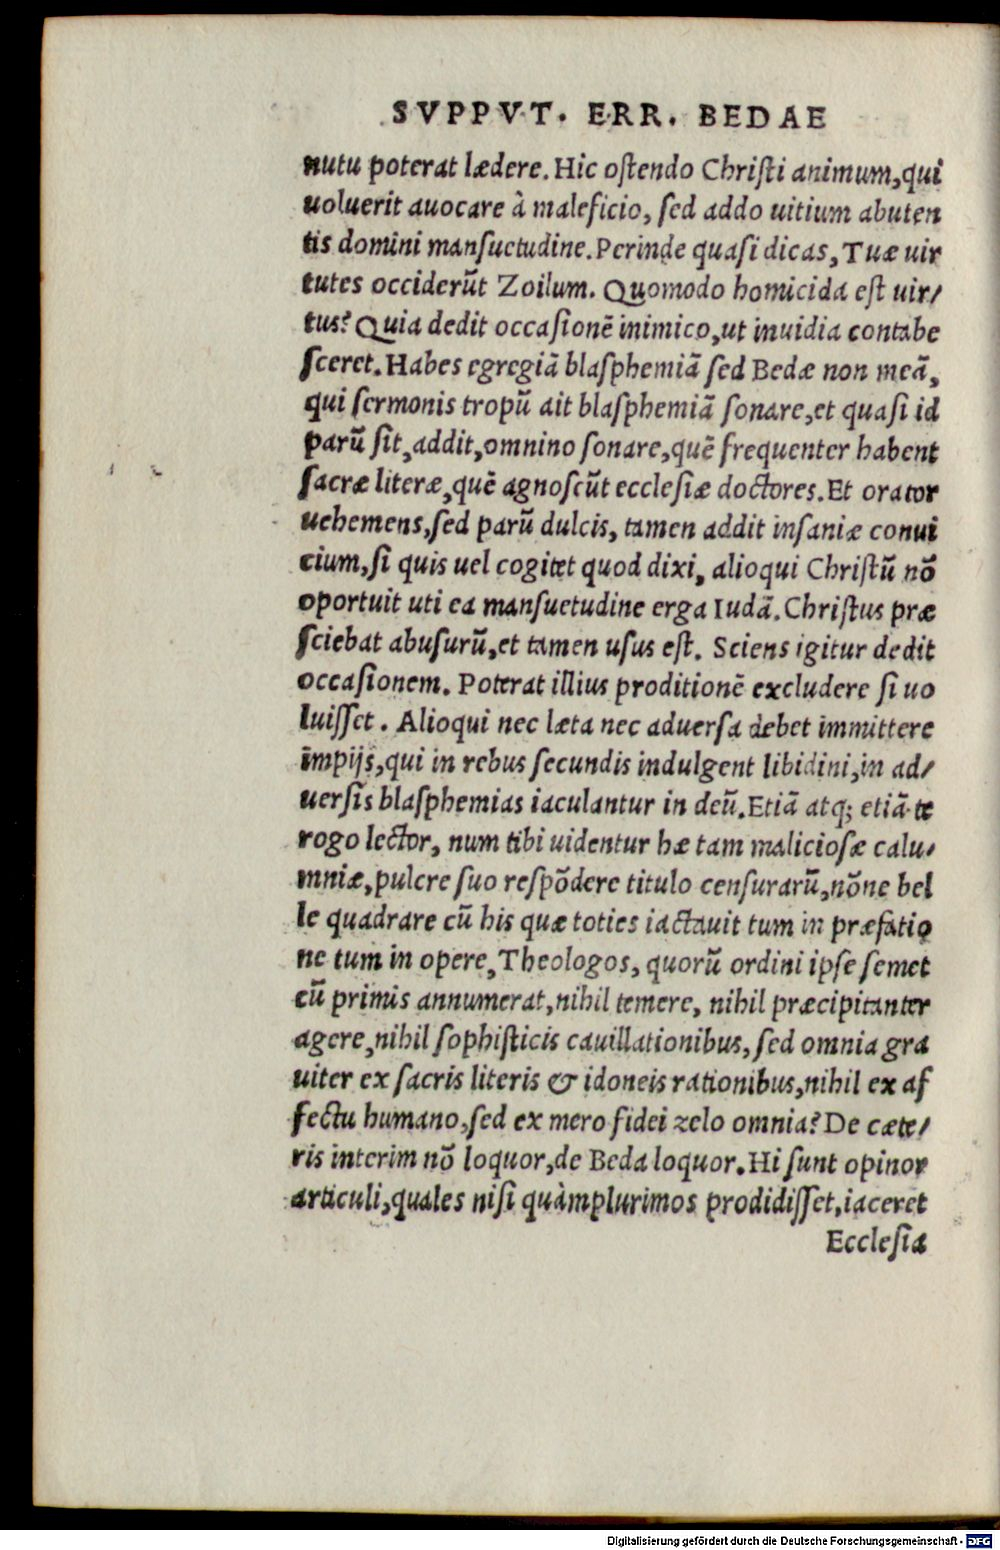 SVPPVT. ERR. BEDAE
nutu poterat lædere. Hic oſtendo Chriſti animum, qui
uoluerit auocare à maleficio, ſed addo uitium abuten
tis domini manſuetudine. Perinde quaſi dicas, Tuæ uir
tutes occiderũt Zoilum. Quomodo homicida eſt uir/
tus? Quia dedit occaſionẽ inimico, ut inuidia contabe
ſceret. Habes egregiã blaſphemiã ſed Bedæ non meã,
qui ſermonis tropũ ait blaſphemiã ſonare, et quaſi id
parũ ſit, addit, omnino ſonare, quẽ frequenter habent
ſacræ literæ, quẽ agnoſcũt eccleſiæ doctores. Et orator
uehemens, ſed parũ dulcis, tamen addit inſaniæ conui
cium, ſi quis uel cogitet quod dixi, alioqui Chriſtũ nõ
oportuit uti ea manſuetudine erga Iudã. Chriſtus præ
ſciebat abuſurũ, et tamen uſus eſt. Sciens igitur dedit
occaſionem. Poterat illius proditionẽ excludere ſi uo
luiſſet. Alioqui nec læta nec aduerſa debet immittere
impijs, qui in rebus ſecundis indulgent libidini, in ad/
uerſis blaſphemias iaculantur in deũ. Etiã atq; etiã te
rogo lector, num tibi uidentur hæ tam malicioſæ calu/
mniæ, pulcre ſuo reſpõdere titulo cenſurarũ, nõne bel
le quadrare cũ his quæ toties iactauit tum in præfatio
ne tum in opere, Theologos, quorũ ordini ipſe ſemet
cũ primis annumerat, nihil temere, nihil præcipitanter
agere, nihil ſophiſticis cauillationibus, ſed omnia gra
uiter ex ſacris literis & idoneis rationibus, nihil ex af
fectu humano, ſed ex mero fidei zelo omnia? De cæte/
ris interim nõ loquor, de Beda loquor. Hi ſunt opinor
articuli, quales niſi quàmplurimos prodidiſſet, iaceret
Eccleſia
Digitalisierung gefördert durch die Deutsche Forschungsgemeinschaft - DFG